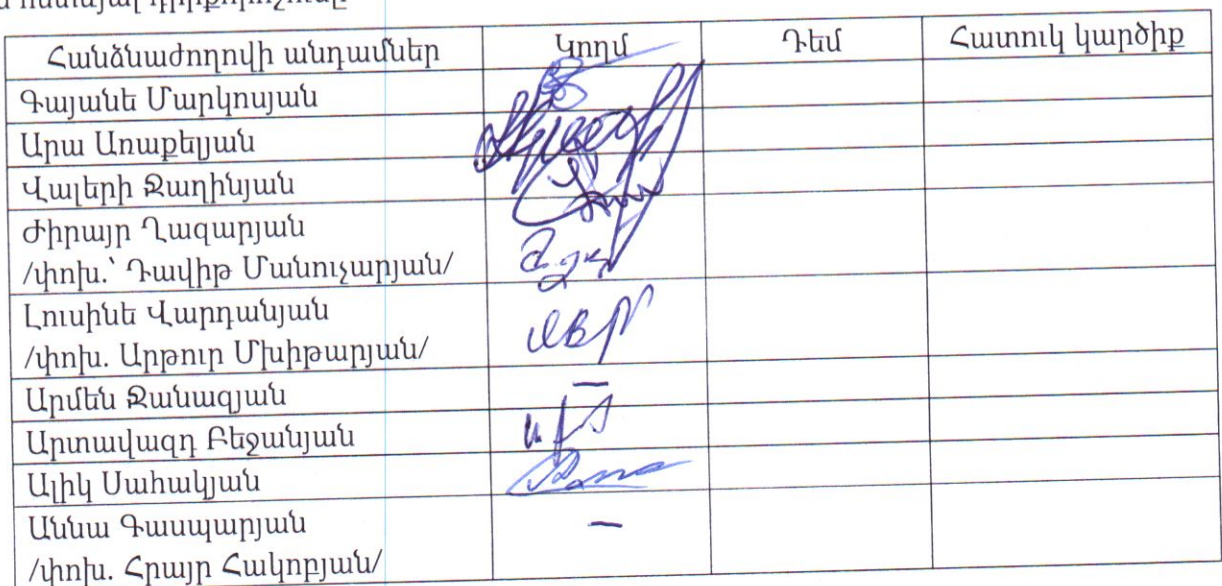 Հանձնաժողովի անդամներ Կողմ Դեմ Հատուկ կարծիք
Գայանե Մարկոսյան
Արա Առաքելյան
Վալերի Ջաղինյան
Ժիրայր Ղազարյան
/փոխ.՝ Դավիթ Մանուչարյան/
Լուսինե Վարդանյան
/փոխ. Արթուր Մխիթարյան/
Արմեն Ջանազյան —
Արտավազդ Բեջանյան
Ալիկ Սահակյան
Աննա Գասպարյան —
/փոխ. Հրայր Հակոբյան/